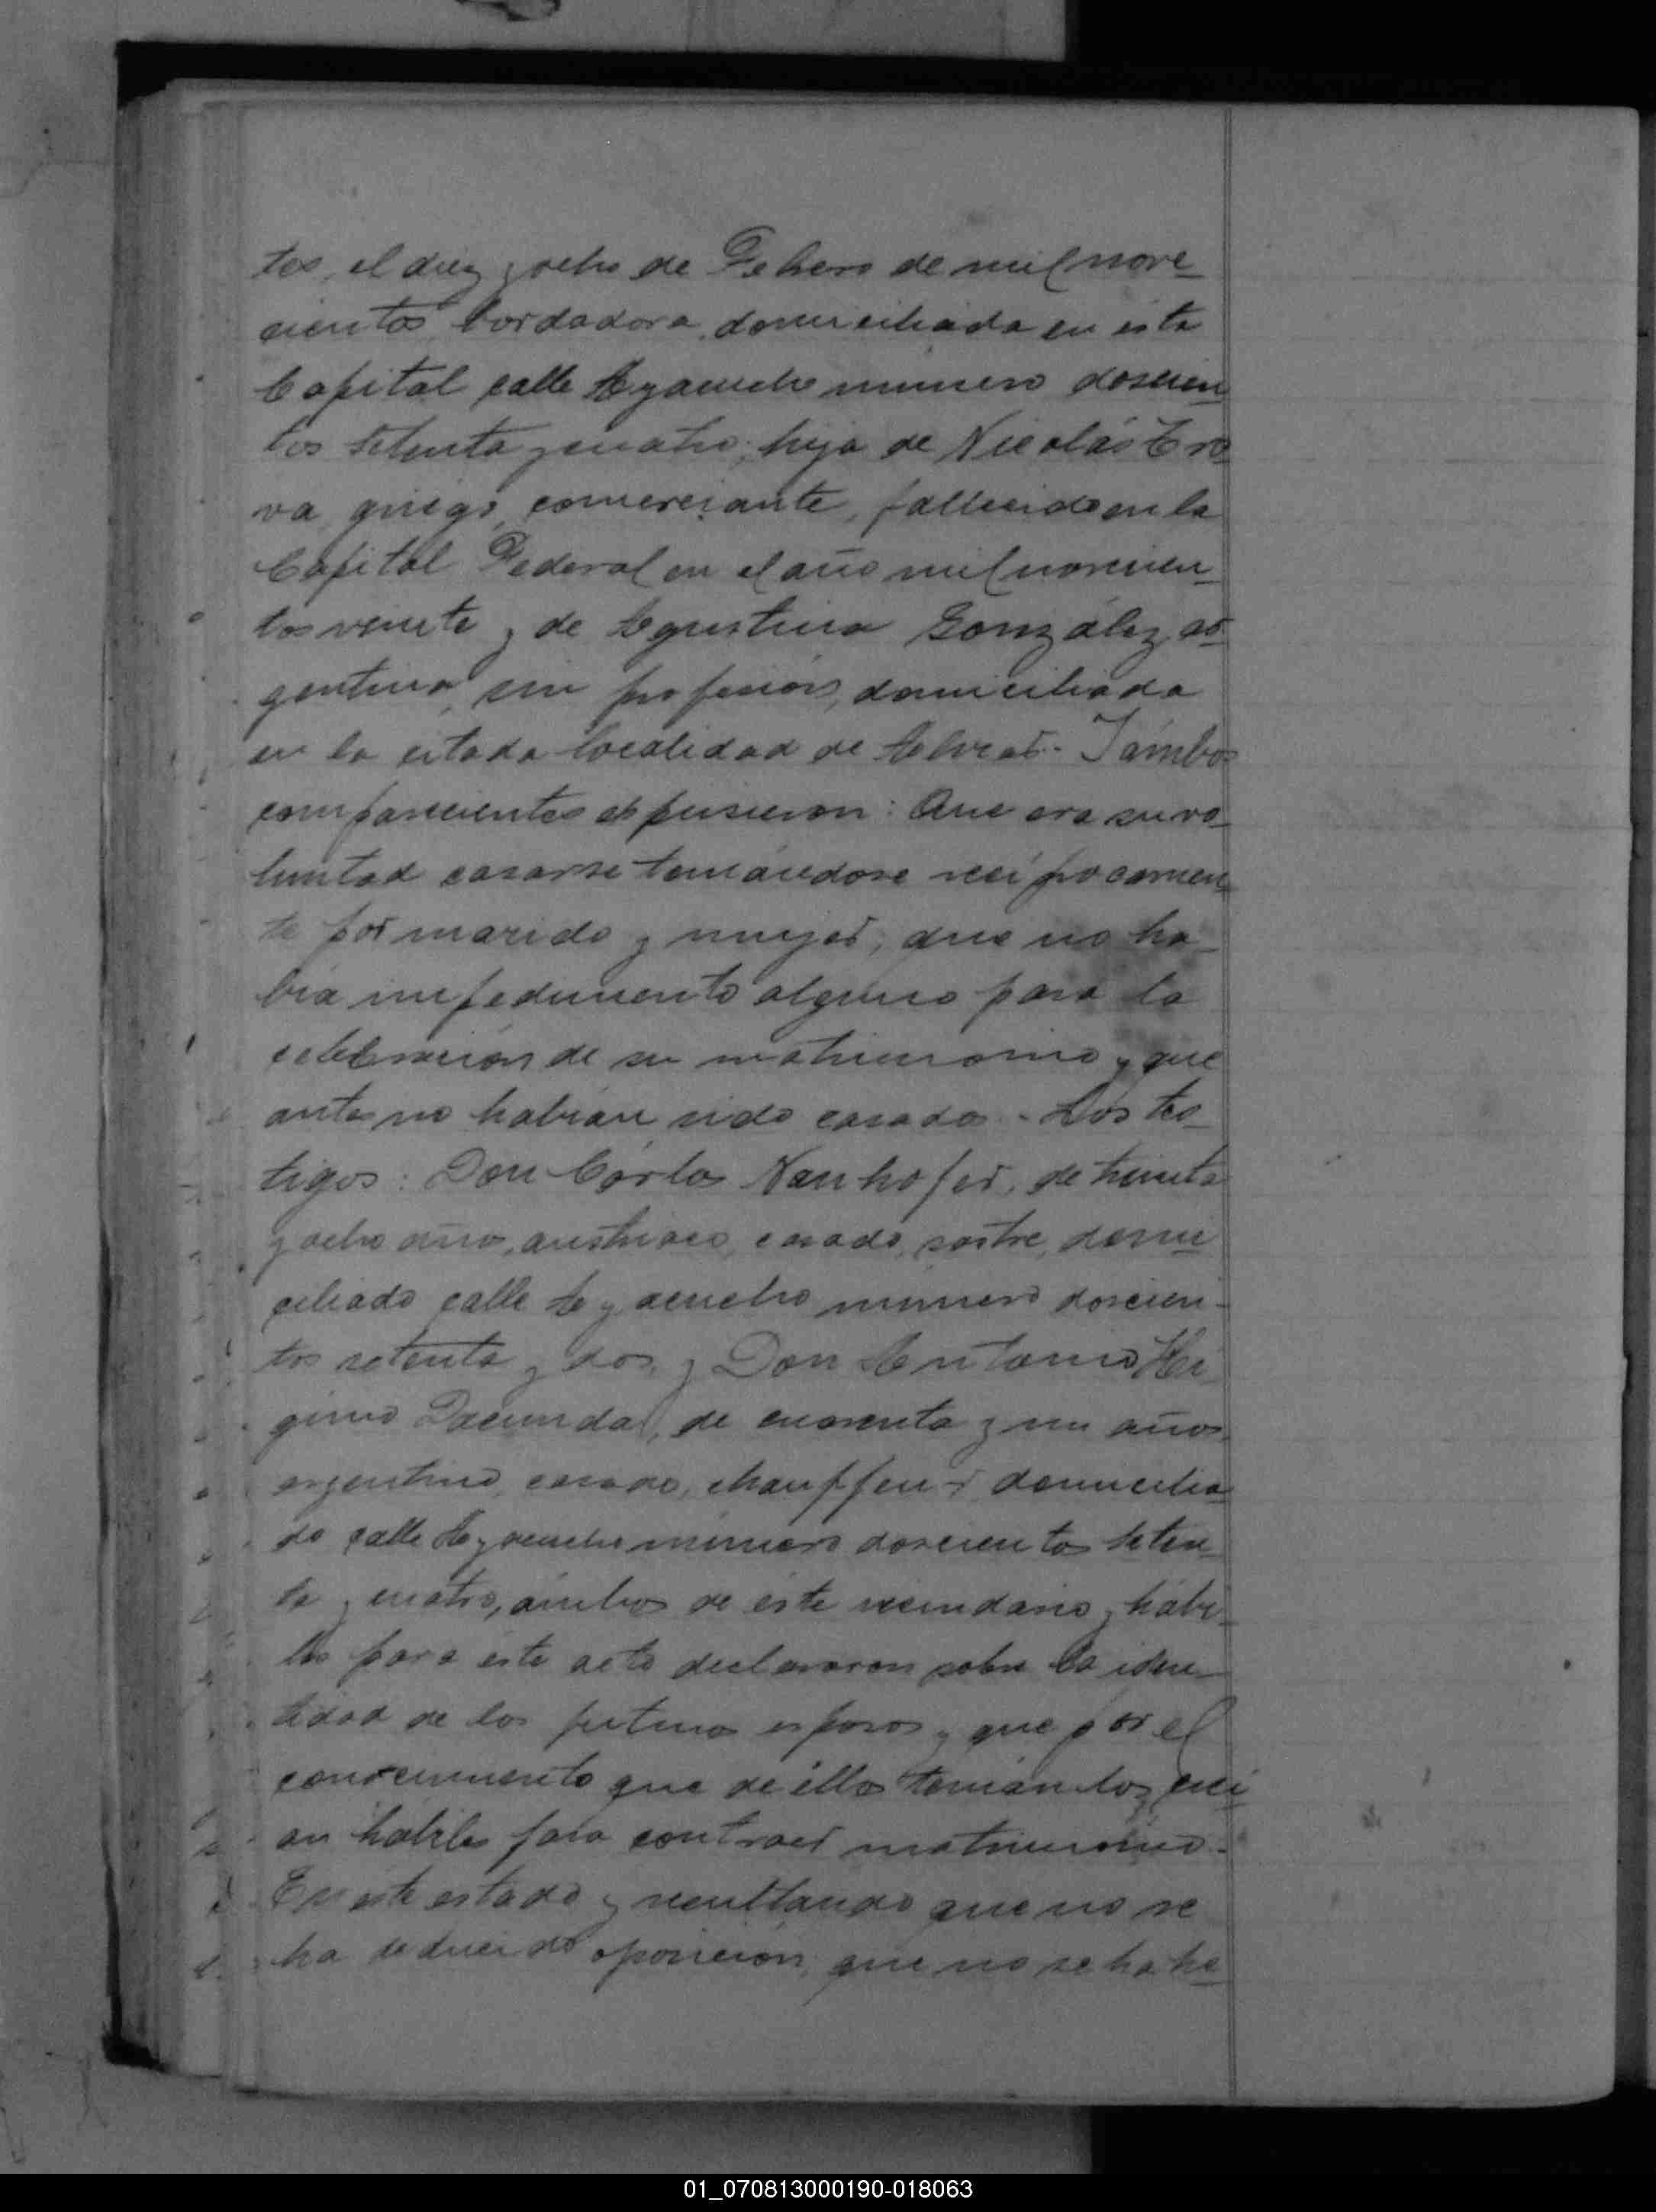 tes, el diez y ocho de Febrero de mil nove-
cientos, bordadora, domiciliada en ésta
Capital calle Ayacucho número doscien-
tos setenta y cuatro; hija de Nicolás Tro-
va, griego, comerciante, fallecido en la
Capital Federal en el año mil novecien-
tos veinte y de Agustina González, ar-
gentina, sin profesión, domiciliada
en la citada localidad de Alvear.- I ambos
comparecientes expusieron: Que era su vo-
luntad casarse tomándose recíprocamen-
te por marido y mujer; que no ha-
bía impedimento alguno para la
celebración de su matrimonio y que
antes no habían sido casados.- Los tes-
tigos: Don Cárlos Nenhofer, de treinta
y ocho años, austriaco, casado, sastre, domi-
ciliado calle Ayacucho número doscien-
tos setenta y dos, y Don Antonio Hi-
ginio Dacunda, de cuarenta y un años,
argentino, casado, chauffeur, domicilia-
do calle Ayacucho número doscientos seten-
ta y cuatro, ámbos de éste vecindario y hábi-
les para éste acto declararon sobre la iden-
tidad de los futuros esposos y que por el
conocimiento que de éllos tenían los creí-
an hábiles para contraer matrimonio.-
En este estado y resultando que no se
ha deducido oposición, que no se ha he-
01_070813000190-018063